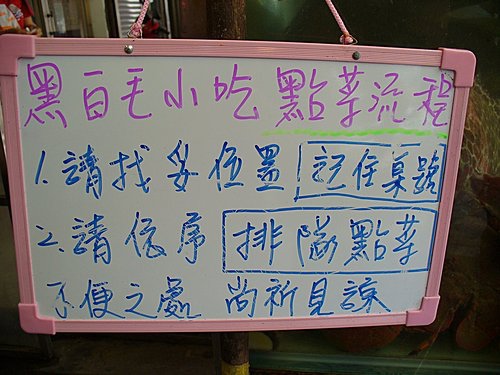 黑白毛小吃 點菜流程
1.請找妥位置 記住桌號
2.請依序 排隊點菜
不便之處 尚祈見諒